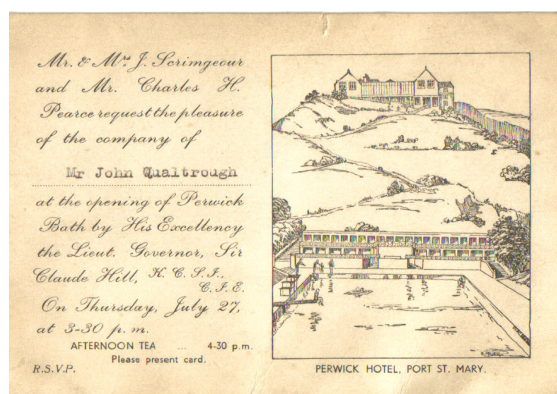 Mr. & Mrs J. Scrimgeour
and Mr. Charles H.
Pearce request the pleasure
of the company of
Mr John Qualtrough
at the opening of Perwick
Bath by His Excellency
the Lieut. Governor, Sir
Claude Hill, K. C. S. I.,
C. I. E.
On Thursday, July 27,
at 3-30 p. m.
AFTERNOON TEA ... 4-30 p.m.
Please present card.
R.S.V.P.
PERWICK HOTEL, PORT ST. MARY.